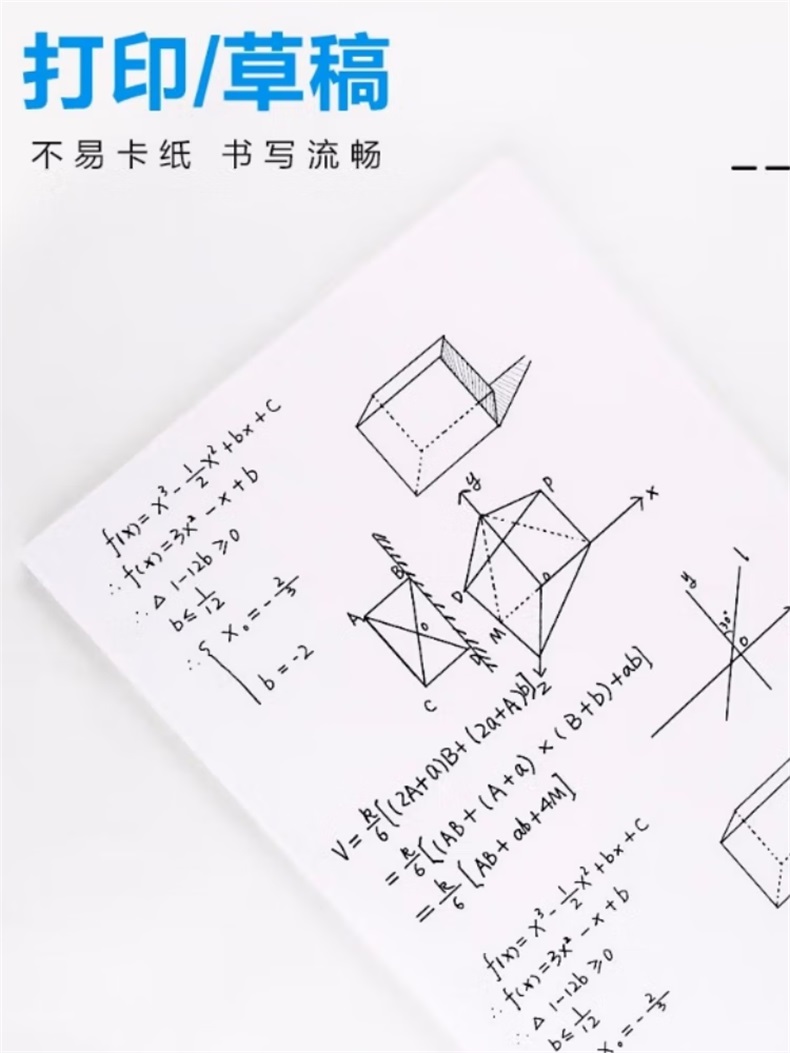 打印/草稿
不易卡纸 书写流畅
f(x)=x³-1/2x²+bx+C
∴f(x)=3x²-x+b
∴△1-12b≥0
b≤1/12
∴{x₀=-2/3
b=-2
y
P
x
D
M
Z
A
B
O
D
C
y
l
30°
O
V=h/6[(2A+a)B+(2a+A)b]
=h/6[(AB+(A+a)×(B+b)+ab]
=h/6[AB+ab+4M]
f(x)=x³-1/2x²+bx+C
∴f(x)=3x²-x+b
∴△1-12b≥0
b≤1/12
x₀=-2/3